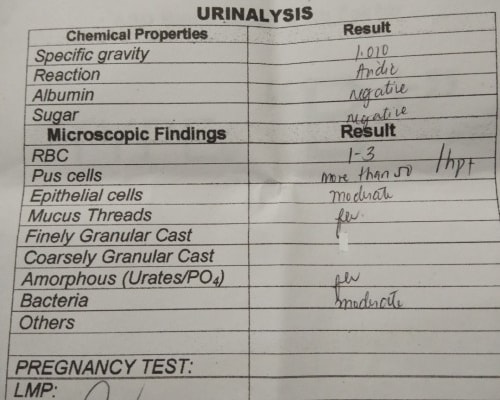 URINALYSIS
Chemical Properties Result
Specific gravity 1.010
Reaction Acidic
Albumin negative
Sugar negative
Microscopic Findings Result
RBC 1-3
Pus cells more than 50 /hpf
Epithelial cells moderate
Mucus Threads few
Finely Granular Cast
Coarsely Granular Cast
Amorphous (Urates/PO4) few
Bacteria moderate
Others
PREGNANCY TEST:
LMP: